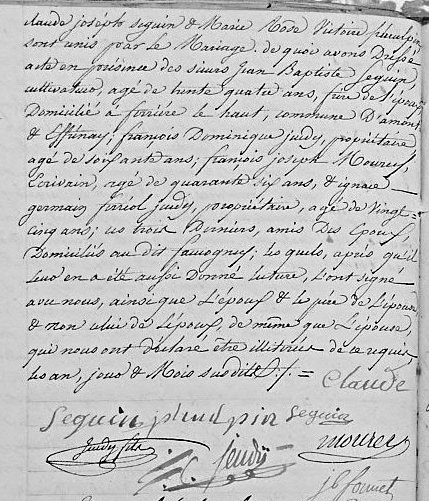 claude joséph Seguin & Marie Rose Victoire pluulpin
sont unis par le Mariage. de quoi avons Dressé
acte en présence des sieurs Jean Baptiste Seguin,
cultivateur, agé de trente quatre ans, frère de l'époux
Domicilié a ferrière le haut, commune D'amont
& Effrénay; françois Dominique judy, propriétaire
agé de soixante ans; françois joseph Mouret,
Ecrivain, agé de quarante six ans, & ignace
germain ferréol judy, propriétaire, agé de Vingt=
cinq ans; les trois Derniers, amis Des Epoux,
Domiciliés au dit faucogney; Lesquels, après qu'il
leur en a été aussi Donné lecture, l'ont signé
avec nous, ainsi que L'époux & le père de L'épouse
& non celui de L'époux, de même que L'épouse,
qui nous ont déclaré être illitérés de ce requis
les an, jour & Mois susdits ./. =
Claude
Seguin pluulpin Seguin
Judy fils Judy mouret